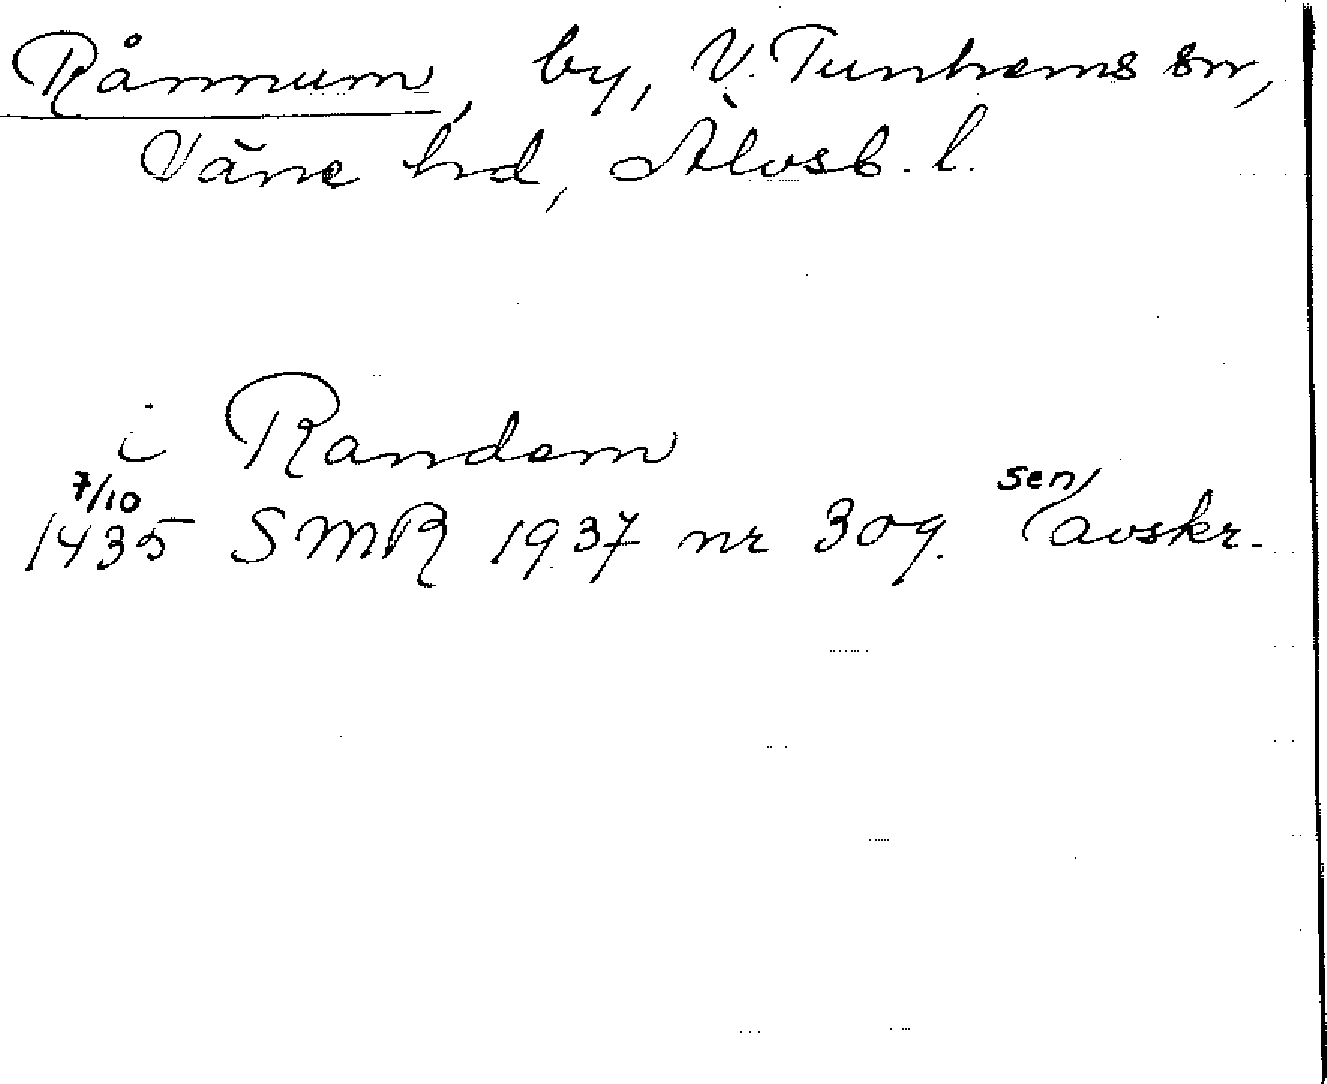 Rånnum, by, V. Tunhems sn,
Väne hd, Älvsb. l.
i Randem
7/10
1435 SMR 1937 nr 309. sen avskr.